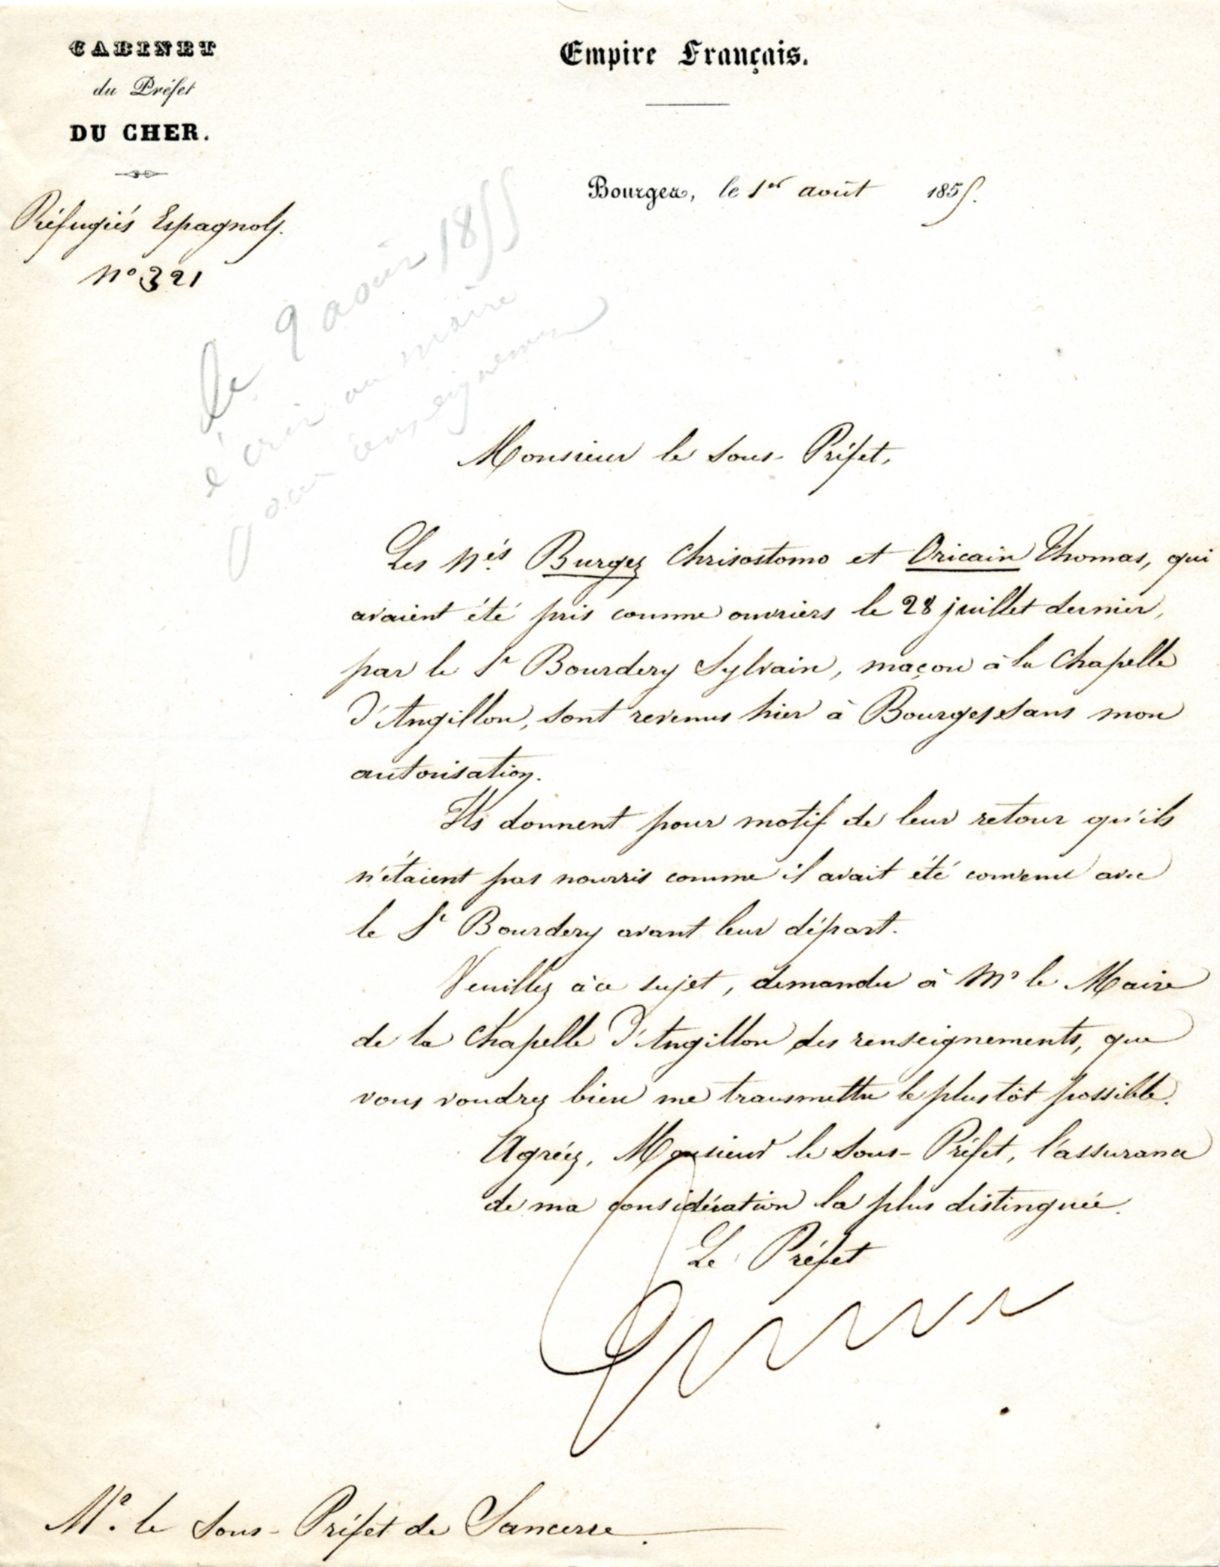 CABINET
du Préfet
DU CHER.
Empire Français.
Bourges, le 1er août 1855.
Réfugiés Espagnols.
N° 321
le 9 août 1855
écrire au maire
pour renseignemens
Monsieur le Sous-Préfet,
Les nés Burgez Chrisostomo et Oricain Thomas, qui
avaient été pris comme ouvriers le 28 juillet dernier,
par le Sr Bourdery Sylvain, maçon à la Chapelle
d'Angillon, sont revenus hier à Bourges sans mon
autorisation.
Ils donnent pour motif de leur retour qu'ils
n'étaient pas nourris comme il avait été convenu avec
le Sr Bourdery avant leur départ.
Veuillez à ce sujet, demander à Mr le Maire
de la Chapelle d'Angillon des renseignements, que
vous voudrez bien me transmettre le plus tôt possible.
Agréez, Monsieur le Sous-Préfet, l'assurance
de ma considération la plus distinguée.
Le Préfet
Mr. le Sous-Préfet de Sancerre